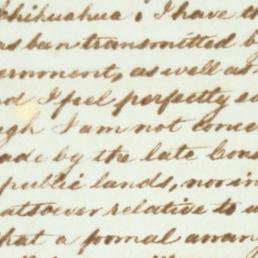 Chihuahua; I have th
been transmitted b
ernment, as well as
d I feel perfectly
gh I am not conce
ade by the late Con
public lands, nor in
atsoever relative to
that a formal arran